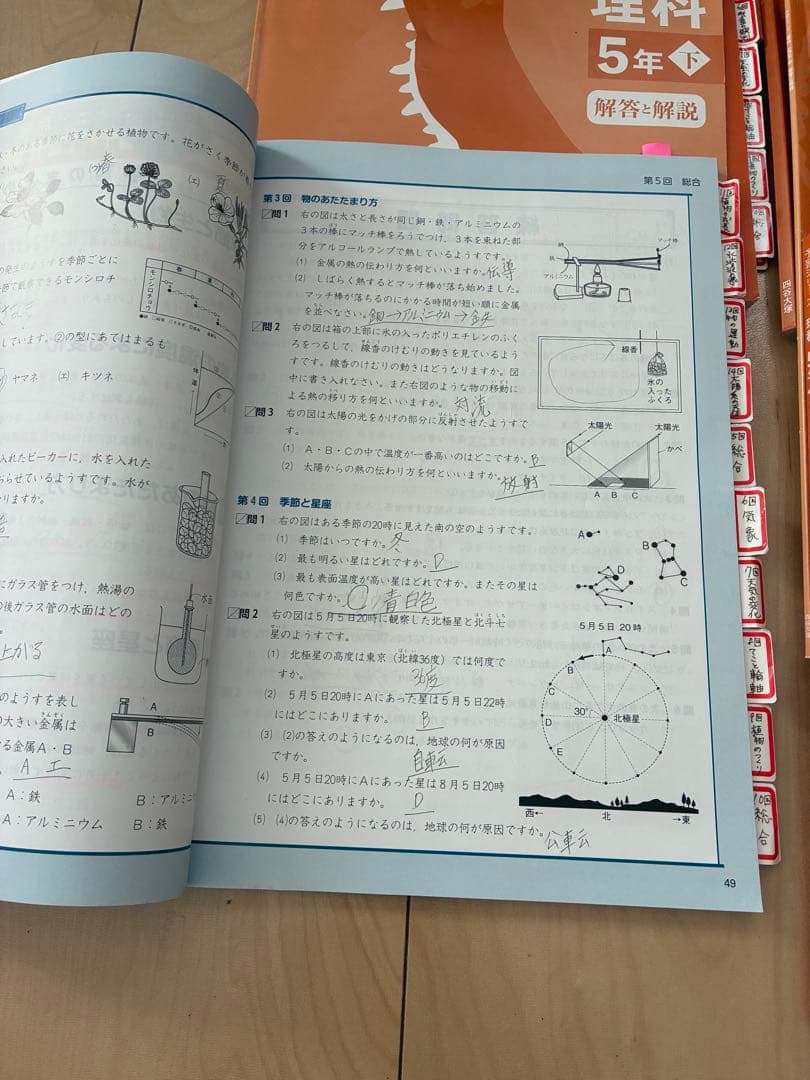 理科
5年 下
解答と解説
四谷大塚
第5回 総合
ある季節に花をさかせる植物です。花がさく季節が
春
(エ) 夏
モンシロチョウ
(エ) キツネ
ヤマネ
しています。②の型にあてはまるも
入れたビーカーに、水を入れた
らせているようすです。水が
りますか。
にガラス管をつけ、熱湯の
の後ガラス管の水面はどの
水面
上がる
のようすを表し
の大きい金属は
る金属A・B
A エ
A
B
A：鉄
A：アルミニウム B：鉄
第3回 物のあたたまり方
問1 右の図は太さと長さが同じ銅・鉄・アルミニウムの
3本の棒にマッチ棒をろうでつけ、3本を束ねた部
分をアルコールランプで熱しているようすです。
(1) 金属の熱の伝わり方を何といいますか。伝導
(2) しばらく熱するとマッチ棒が落ち始めました。
マッチ棒が落ちるのにかかる時間が短い順に金属
を並べなさい。銅→アルミニウム→鉄
銅
鉄
アルミニウム
マッチ棒
問2 右の図は箱の上部に氷の入ったポリエチレンのふく
ろをつるして、線香のけむりの動きを見ているよう
すです。線香のけむりの動きはどうなりますか。図
中に書き入れなさい。また右図のような物の移動に
よる熱の移り方を何といいますか。 対流
線香
氷の
入った
ふくろ
問3 右の図は太陽の光をかげの部分に反射させたようすで
す。
(1) A・B・Cの中で温度が一番高いのはどこですか。B
(2) 太陽からの熱の伝わり方を何といいますか。放射
太陽光
太陽光
かべ
A B C
第4回 季節と星座
問1 右の図はある季節の20時に見えた南の空のようすです。
(1) 季節はいつですか。冬
(2) 最も明るい星はどれですか。D
(3) 最も表面温度が高い星はどれですか。またその星は
何色ですか。C 青白色
A
B
C
D
問2 右の図は5月5日20時に観察した北極星と北斗七
星のようすです。
(1) 北極星の高度は東京（北緯36度）では何度で
すか。 36度
(2) 5月5日20時にAにあった星は5月5日22時
にはどこにありますか。 B
(3) (2)の答えのようになるのは、地球の何が原因
ですか。 自転
(4) 5月5日20時にAにあった星は8月5日20時
にはどこにありますか。 D
(5) (4)の答えのようになるのは、地球の何が原因ですか。公転
5月5日 20時
A
B
C
D
E
30°
北極星
西←
北
→東
49
14回 太陽の動き
6回 気象
7回 天気の変化
8回 てこと輪軸
9回 植物のつくり
10回 総合